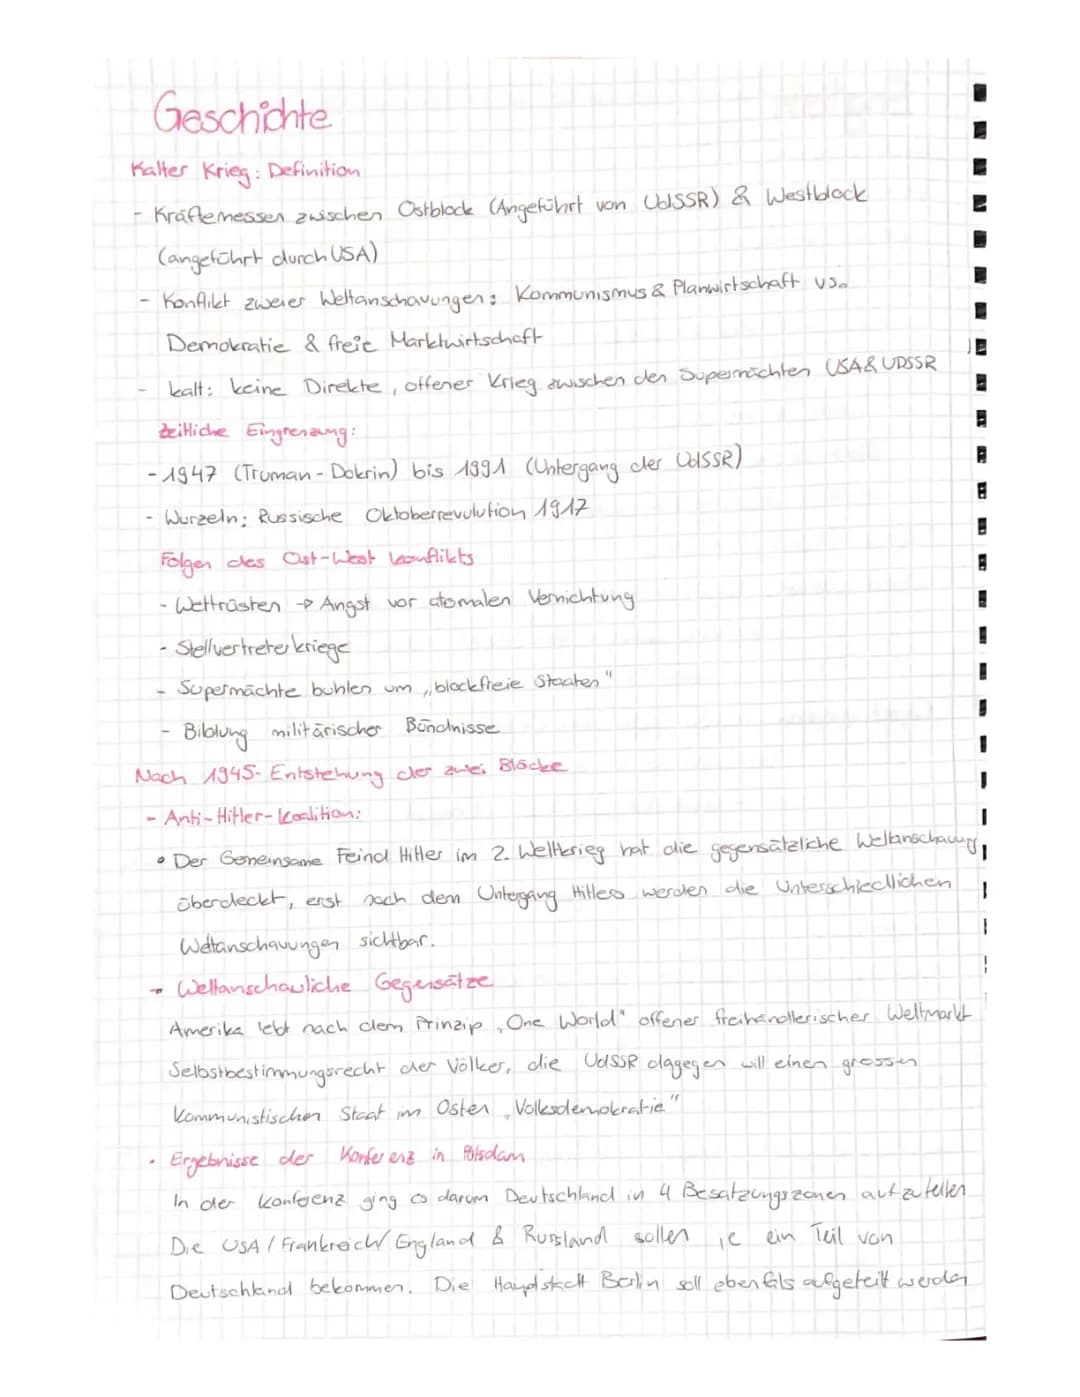 Geschichte
Kalter Krieg: Definition
- Kräftemessen zwischen Ostblock (Angeführt von UdSSR) & Westblock
(angeführt durch USA)
- Konflikt zweier Weltanschauungen: Kommunismus & Planwirtschaft vs.
Demokratie & freie Marktwirtschaft
- kalt: keine Direkte, offener Krieg zwischen den Supermächten USA & UDSSR
zeitliche Eingrenzung:
- 1947 (Truman-Dokrin) bis 1991 (Untergang der UdSSR)
- Wurzeln: Russische Oktoberrevulution 1917
Folgen des Ost-West konflikts
- Wettrüsten → Angst vor atomalen Vernichtung
- Stellvertreterkriege
- Supermächte buhlen um „blockfreie Staaten"
- Bildung militärischer Bündnisse
Nach 1945- Entstehung der zwei Blöcke
- Anti-Hitler-koalition:
• Der Gemeinsame Feind Hitler im 2. Weltkrieg hat die gegensätzliche Weltanschauung
überdeckt, erst nach dem Untergang Hitlers werden die Unterschiedlichen
Weltanschauungen sichtbar.
→ Weltanschauliche Gegensätze
Amerika lebt nach dem Prinzip „One World" offener freihändlerischer Weltmarkt
Selbstbestimmungsrecht der Völker, die UdSSR dagegen will einen grossen
kommunistischen Staat im Osten „Volksdemokratie"
• Ergebnisse der Konferenz in Potsdam
In der konferenz ging es darum Deutschland in 4 Besatzungszonen aufzuteilen
Die USA / Frankreich / England & Russland sollen je ein Teil von
Deutschland bekommen. Die Hauptstadt Berlin soll ebenfals aufgeteilt werden